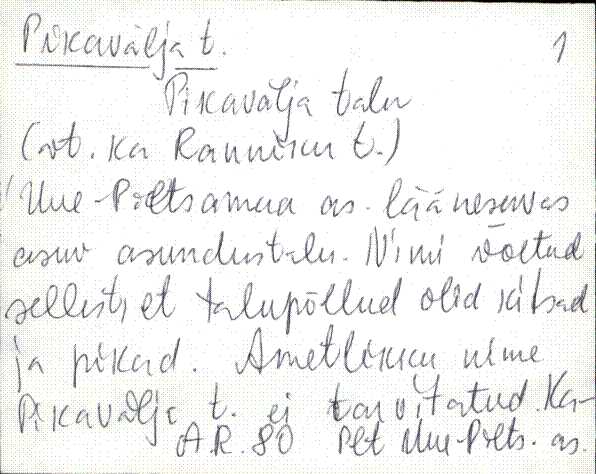 Pikavälja t. 1
Pikavälja talu
(vt. ka Ranniku t.)
Uue-Põltsamaa as. lääneservas
asuv asundustalu. Nimi võetud
sellest, et talupõllud olid kitsad
ja pikad. Ametlikku nime
Pikavälja t. ei tarvitatud. Ka-
A.R. 80 Plt Uue-Põlts. as.